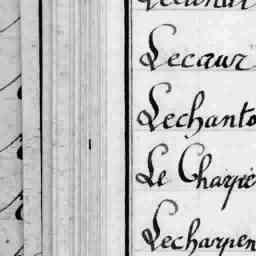 Lecaur
Lechanto
Le Charpe
Lecharpen